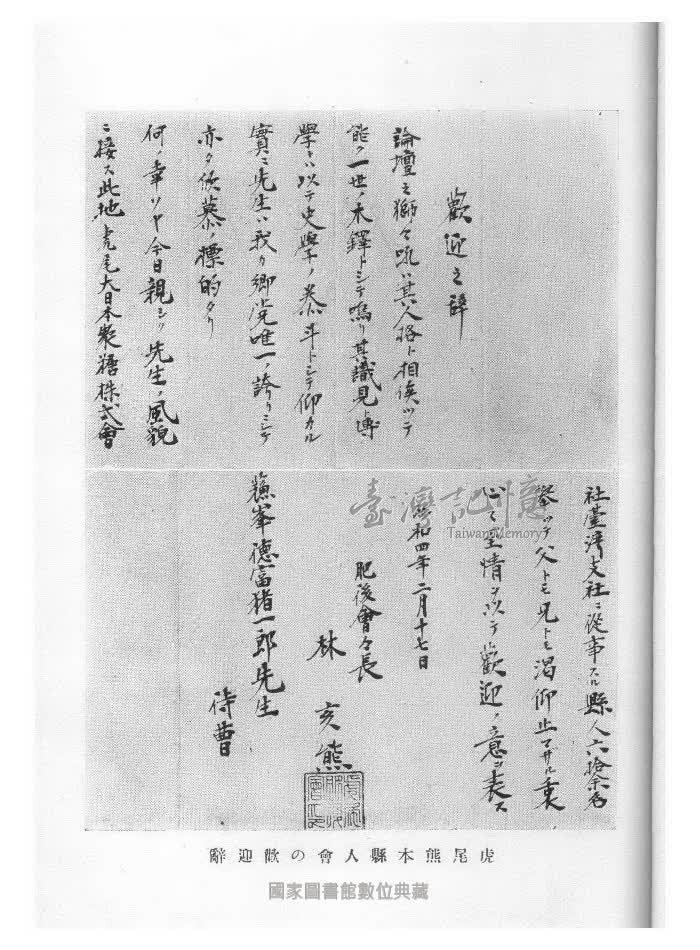 歡迎之辞
論壇之獅々吼ハ其人格ト相俟ツテ
能ク一世ノ木鐸トシテ鳴リ其識見ト博
學トハ以テ史學ノ泰斗トシテ仰カル
實ニ先生ハ我カ郷党唯一ノ誇リニシテ
亦タ欽慕ノ標的タリ
何ノ幸ソヤ今日親シク先生ノ風貌
ニ接ス此地虎尾大日本製糖株式會
社臺灣支社ニ從事スル縣人六拾余名
挙ツテ父トモ兄トモ渇仰止マサル衷
心ノ至情ヲ以テ歡迎ノ意ヲ表ス
昭和四年二月十七日
肥後會々長
林 亥熊
蘇峯徳富猪一郎先生
侍曹
臺灣記憶
Taiwan Memory
虎尾熊本縣人會の歡迎辭
國家圖書館數位典藏